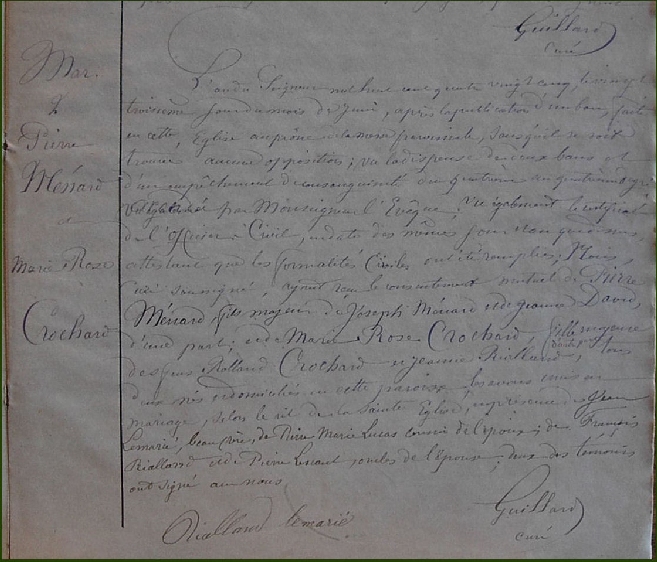 Guillard
curé
Mar.
Pierre
Ménard
et
Marie Rose
Crochard
L'an du Seigneur mil huit cent quatre vingt cinq, le vingt
troisième jour du mois de Juin, après la publication d'un ban faite
en cette Eglise au prône de la messe paroissiale, sans qu'il se soit
trouvé aucune opposition; vu la dispense de deux bans et
d'un empêchement de consanguinité du quatrième au quatrième degré
par Monseigneur l'Evêque; Vu également le certificat
de l'Officier Civil, en date des mêmes jour, mois que dessus,
attestant que les formalités Civiles ont été remplies; Nous,
curé soussigné, ayant reçu le consentement mutuel de Pierre
Ménard fils majeur de Joseph Ménard et de Jeanne David,
d'une part; et de Marie Rose Crochard, fille majeure
des feus Rolland Crochard et Jeanne Rialland, tous
deux nés et domiciliés en cette paroisse, les avons unis en
mariage, selon le rit de la Sainte Eglise, en présence de Jean
Lemarié, beau-frère, de Pierre Marie Lucas cousin de l'époux; de François
Rialland et de Pierre oncles de l'épouse; deux des témoins
ont signé avec nous.
Rialland lemarié
Guillard
curé